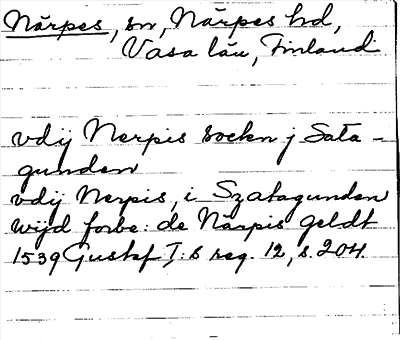 Närpes, sn, Närpes hd,
Vasa län, Finland
vdij Nerpis sockn j Sata-
gunden
vdij Nerpis, i Szatagunden
wijd forbe: de Närpis geldt
1539 Gustaf I:s reg. 12, s. 204.